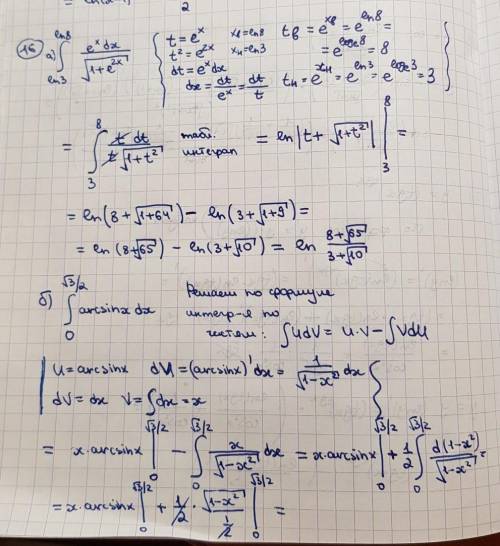 = ln(x-1)
2
16 а) ∫_{ln3}^{ln8} e^x dx / √(1+e^{2x})
t = e^x   x_в = ln8   t_в = e^{x_в} = e^{ln8} =
t² = e^{2x}   x_н = ln3   = e^{log_e 8} = 8
dt = e^x dx
dx = dt/e^x = dt/t   t_н = e^{x_н} = e^{ln3} = e^{log_e 3} = 3
= ∫_3^8 t dt / t√(1+t²)   табл. интеграл   = ln|t + √(1+t²)| |_3^8 =
= ln(8+√(1+64)) - ln(3+√(1+9)) =
= ln(8+√65) - ln(3+√10) = ln (8+√65)/(3+√10)
б) ∫_0^{√3/2} arcsinx dx   Решаем по формуле
интегр-я по
частям: ∫udV = u·V - ∫Vdu
u = arcsinx   du = (arcsinx)' dx = 1/√(1-x²) dx
dV = dx   V = ∫dx = x
= x·arcsinx |_0^{√3/2} - ∫_0^{√3/2} x/√(1-x²) dx = x·arcsinx |_0^{√3/2} + 1/2 ∫_0^{√3/2} d(1-x²)/√(1-x²) =
= x·arcsinx |_0^{√3/2} + 1/2 · √(1-x²) / (1/2) |_0^{√3/2} =